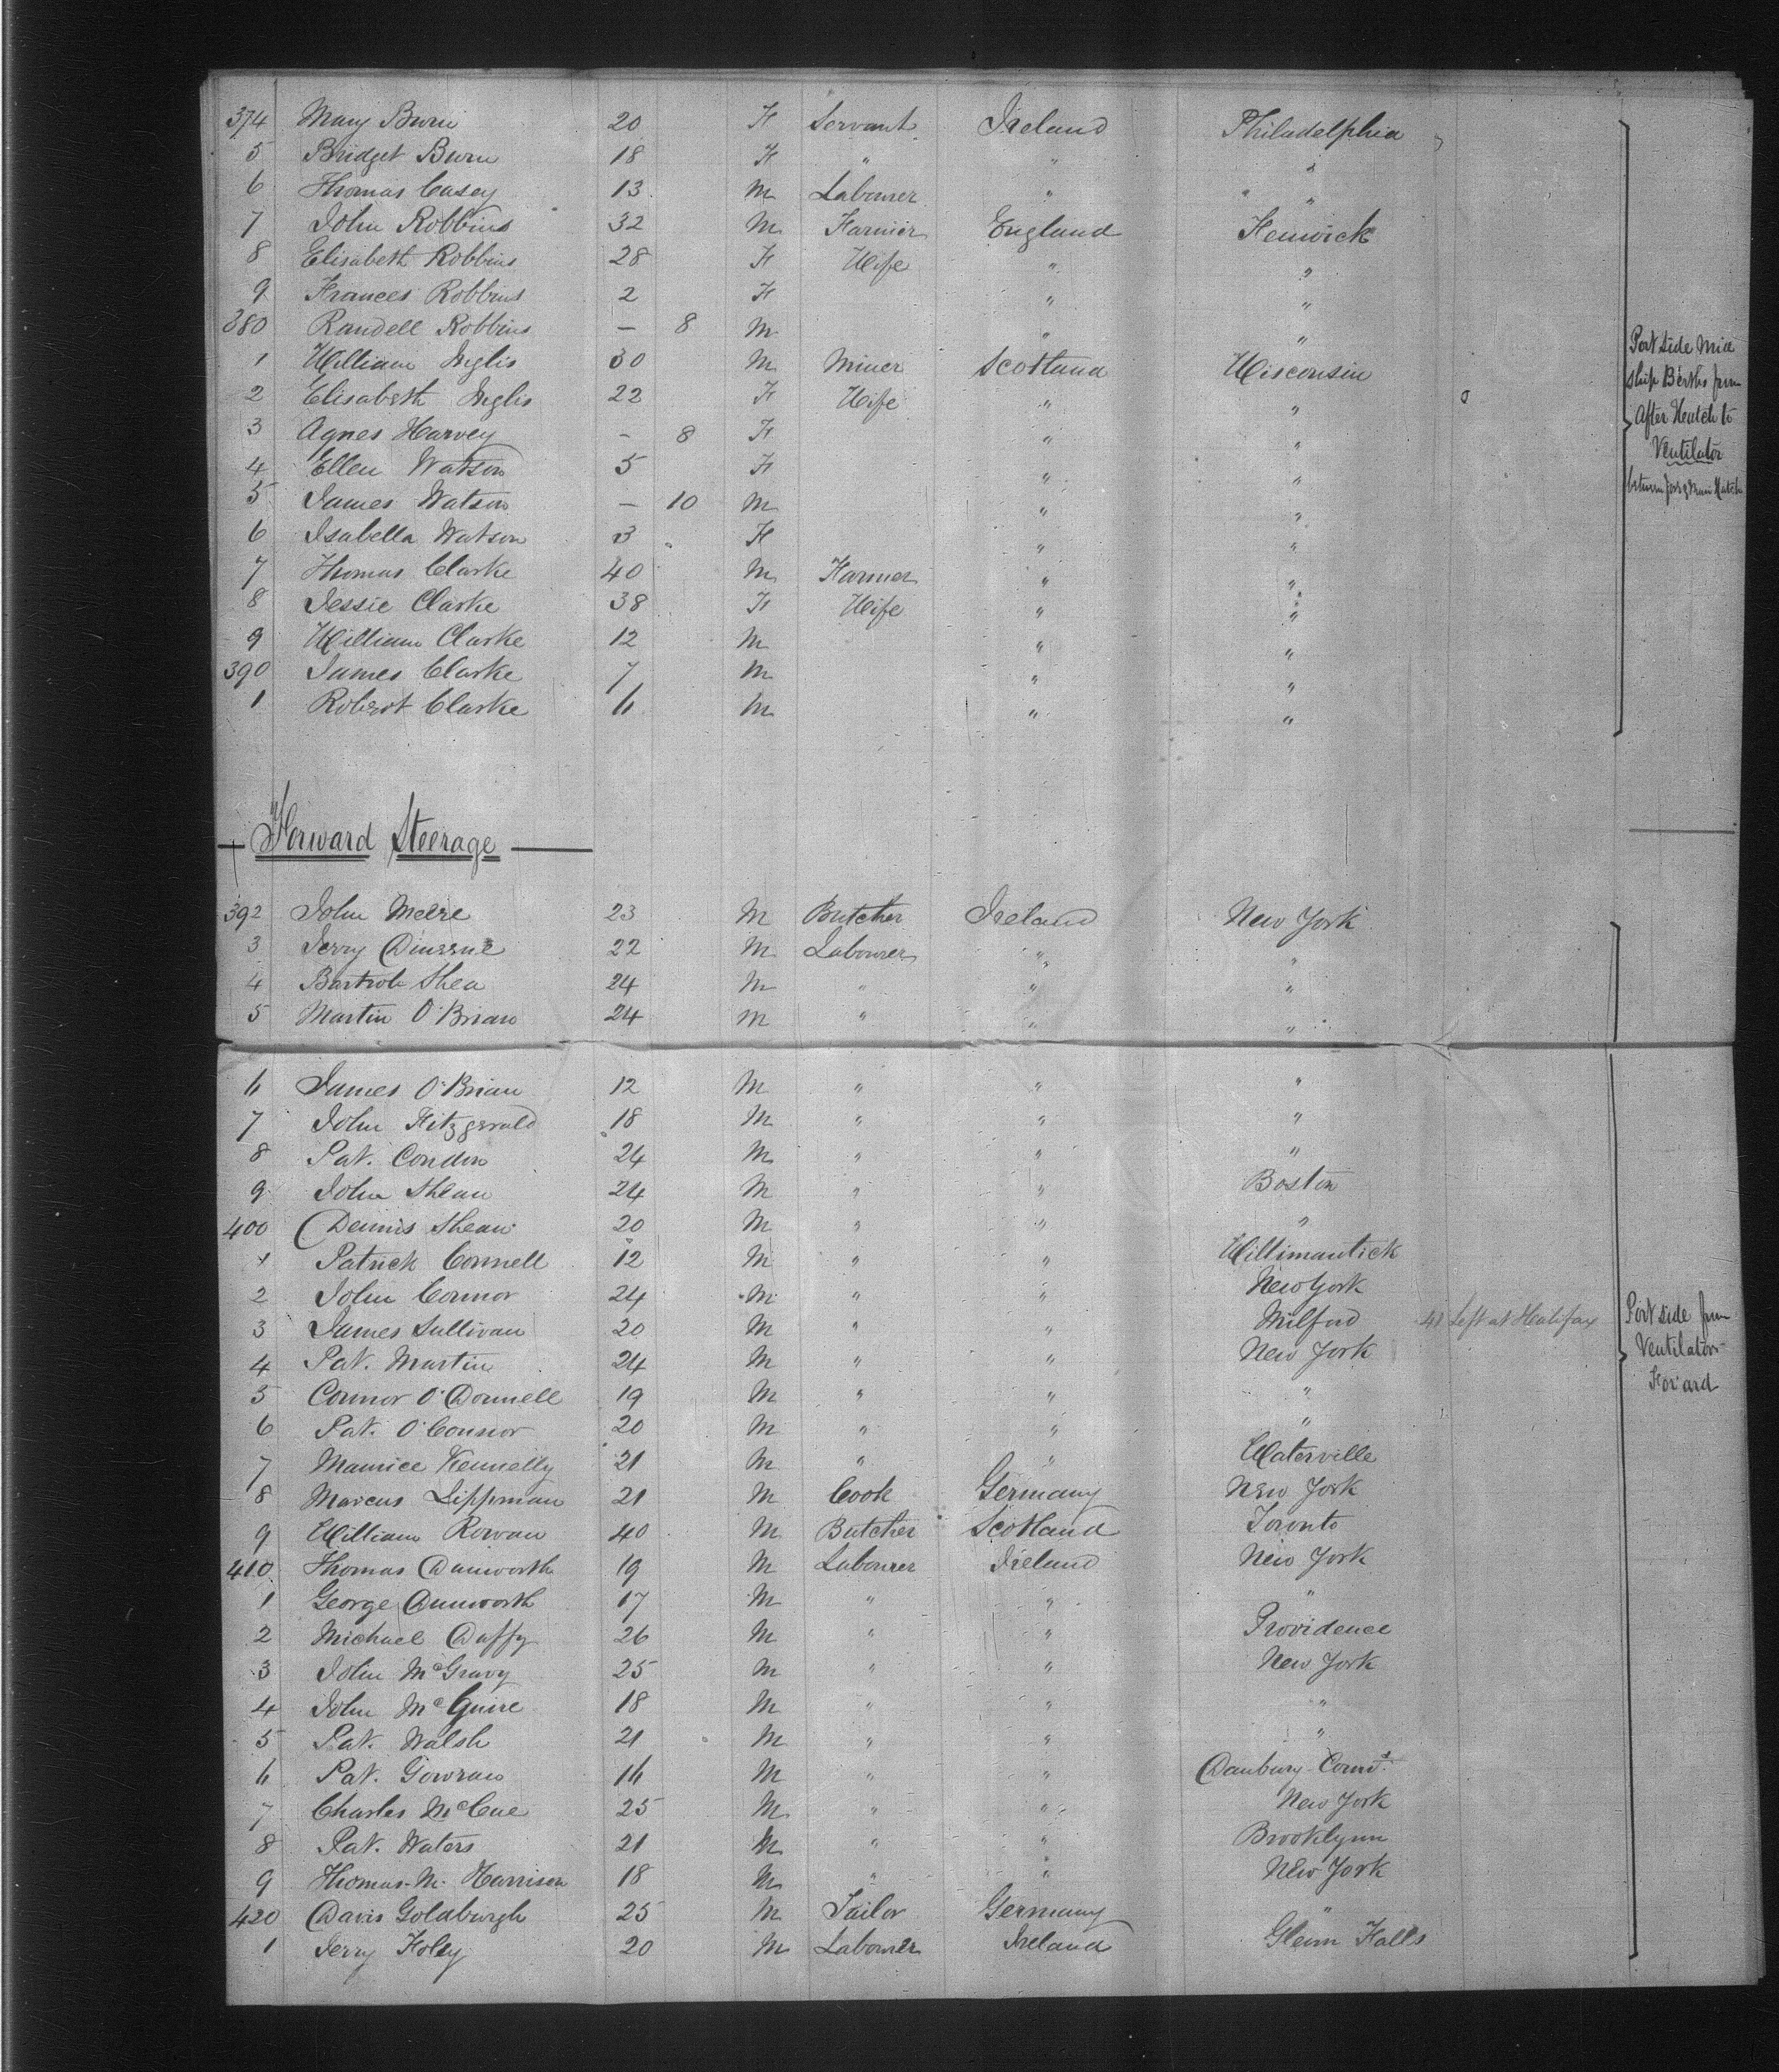 374 Mary Burn 20 F Servant Ireland Philadelphia
5 Bridget Burn 18 F " " "
6 Thomas Casey 13 M Labourer " " "
7 John Robbins 32 M Farmer England Fenwick
8 Elisabeth Robbins 28 F Wife " "
9 Frances Robbins 2 F " "
380 Randell Robbins — 8 M " "
1 William Inglis 30 M Miner Scotland Wisconsin
2 Elisabeth Inglis 22 F Wife " "
3 Agnes Harvey - 8 F " "
4 Ellen Watson 5 F " "
5 James Watson — 10 M " "
6 Isabella Watson 3 F " "
7 Thomas Clarke 40 M Farmer " "
8 Jessie Clarke 38 F Wife " "
9 William Clarke 12 M " "
390 James Clarke 7 M " "
1 Robert Clarke 6 M " "
Port side Mid
ship Berths from
After Hatch to
Ventilator
between Fore & Main Hatch
Forward Steerage
392 John 23 M Butcher Ireland New York
3 Jerry 22 M Labourer " "
4 Shea 24 M " " "
5 Martin O'Brian 24 M " " "
6 James O'Brian 12 M " " "
7 John Fitzgerald 18 M " " "
8 Pat. Condon 24 M " " "
9 John Shean 24 M " " Boston
400 Dennis Shean 20 M " " "
1 Patrick Connell 12 M " " Willimantick
2 John Connor 24 M " " New York
3 James Sullivan 20 M " " Milford 41 Left at Halifax
4 Pat. Martin 24 M " " New York
5 Connor O'Donnell 19 M " " "
6 Pat. O'Connor 20 M " " "
7 Maurice Kennelly 21 M " " Waterville
8 Marcus Lippman 21 M Cook Germany New York
9 William Rowan 40 M Butcher Scotland Toronto
410 Thomas Dunworth 19 M Labourer Ireland New York
1 George Dunworth 17 M " " "
2 Michael Duffy 26 M " " Providence
3 John McGravy 25 M " " New York
4 John McGuire 18 M " " "
5 Pat. Walsh 21 M " " "
6 Pat. Gowran 16 M " " Danbury Connt
7 Charles McCue 25 M " " New York
8 Pat. Waters 21 M " " Brooklynn
9 Thomas M. Harrison 18 M " " New York
420 Davis Goldburgh 25 M Tailor Germany "
1 Jerry Foley 20 M Labourer Ireland Glenn Falls
Port side from
Ventilators
For'ard